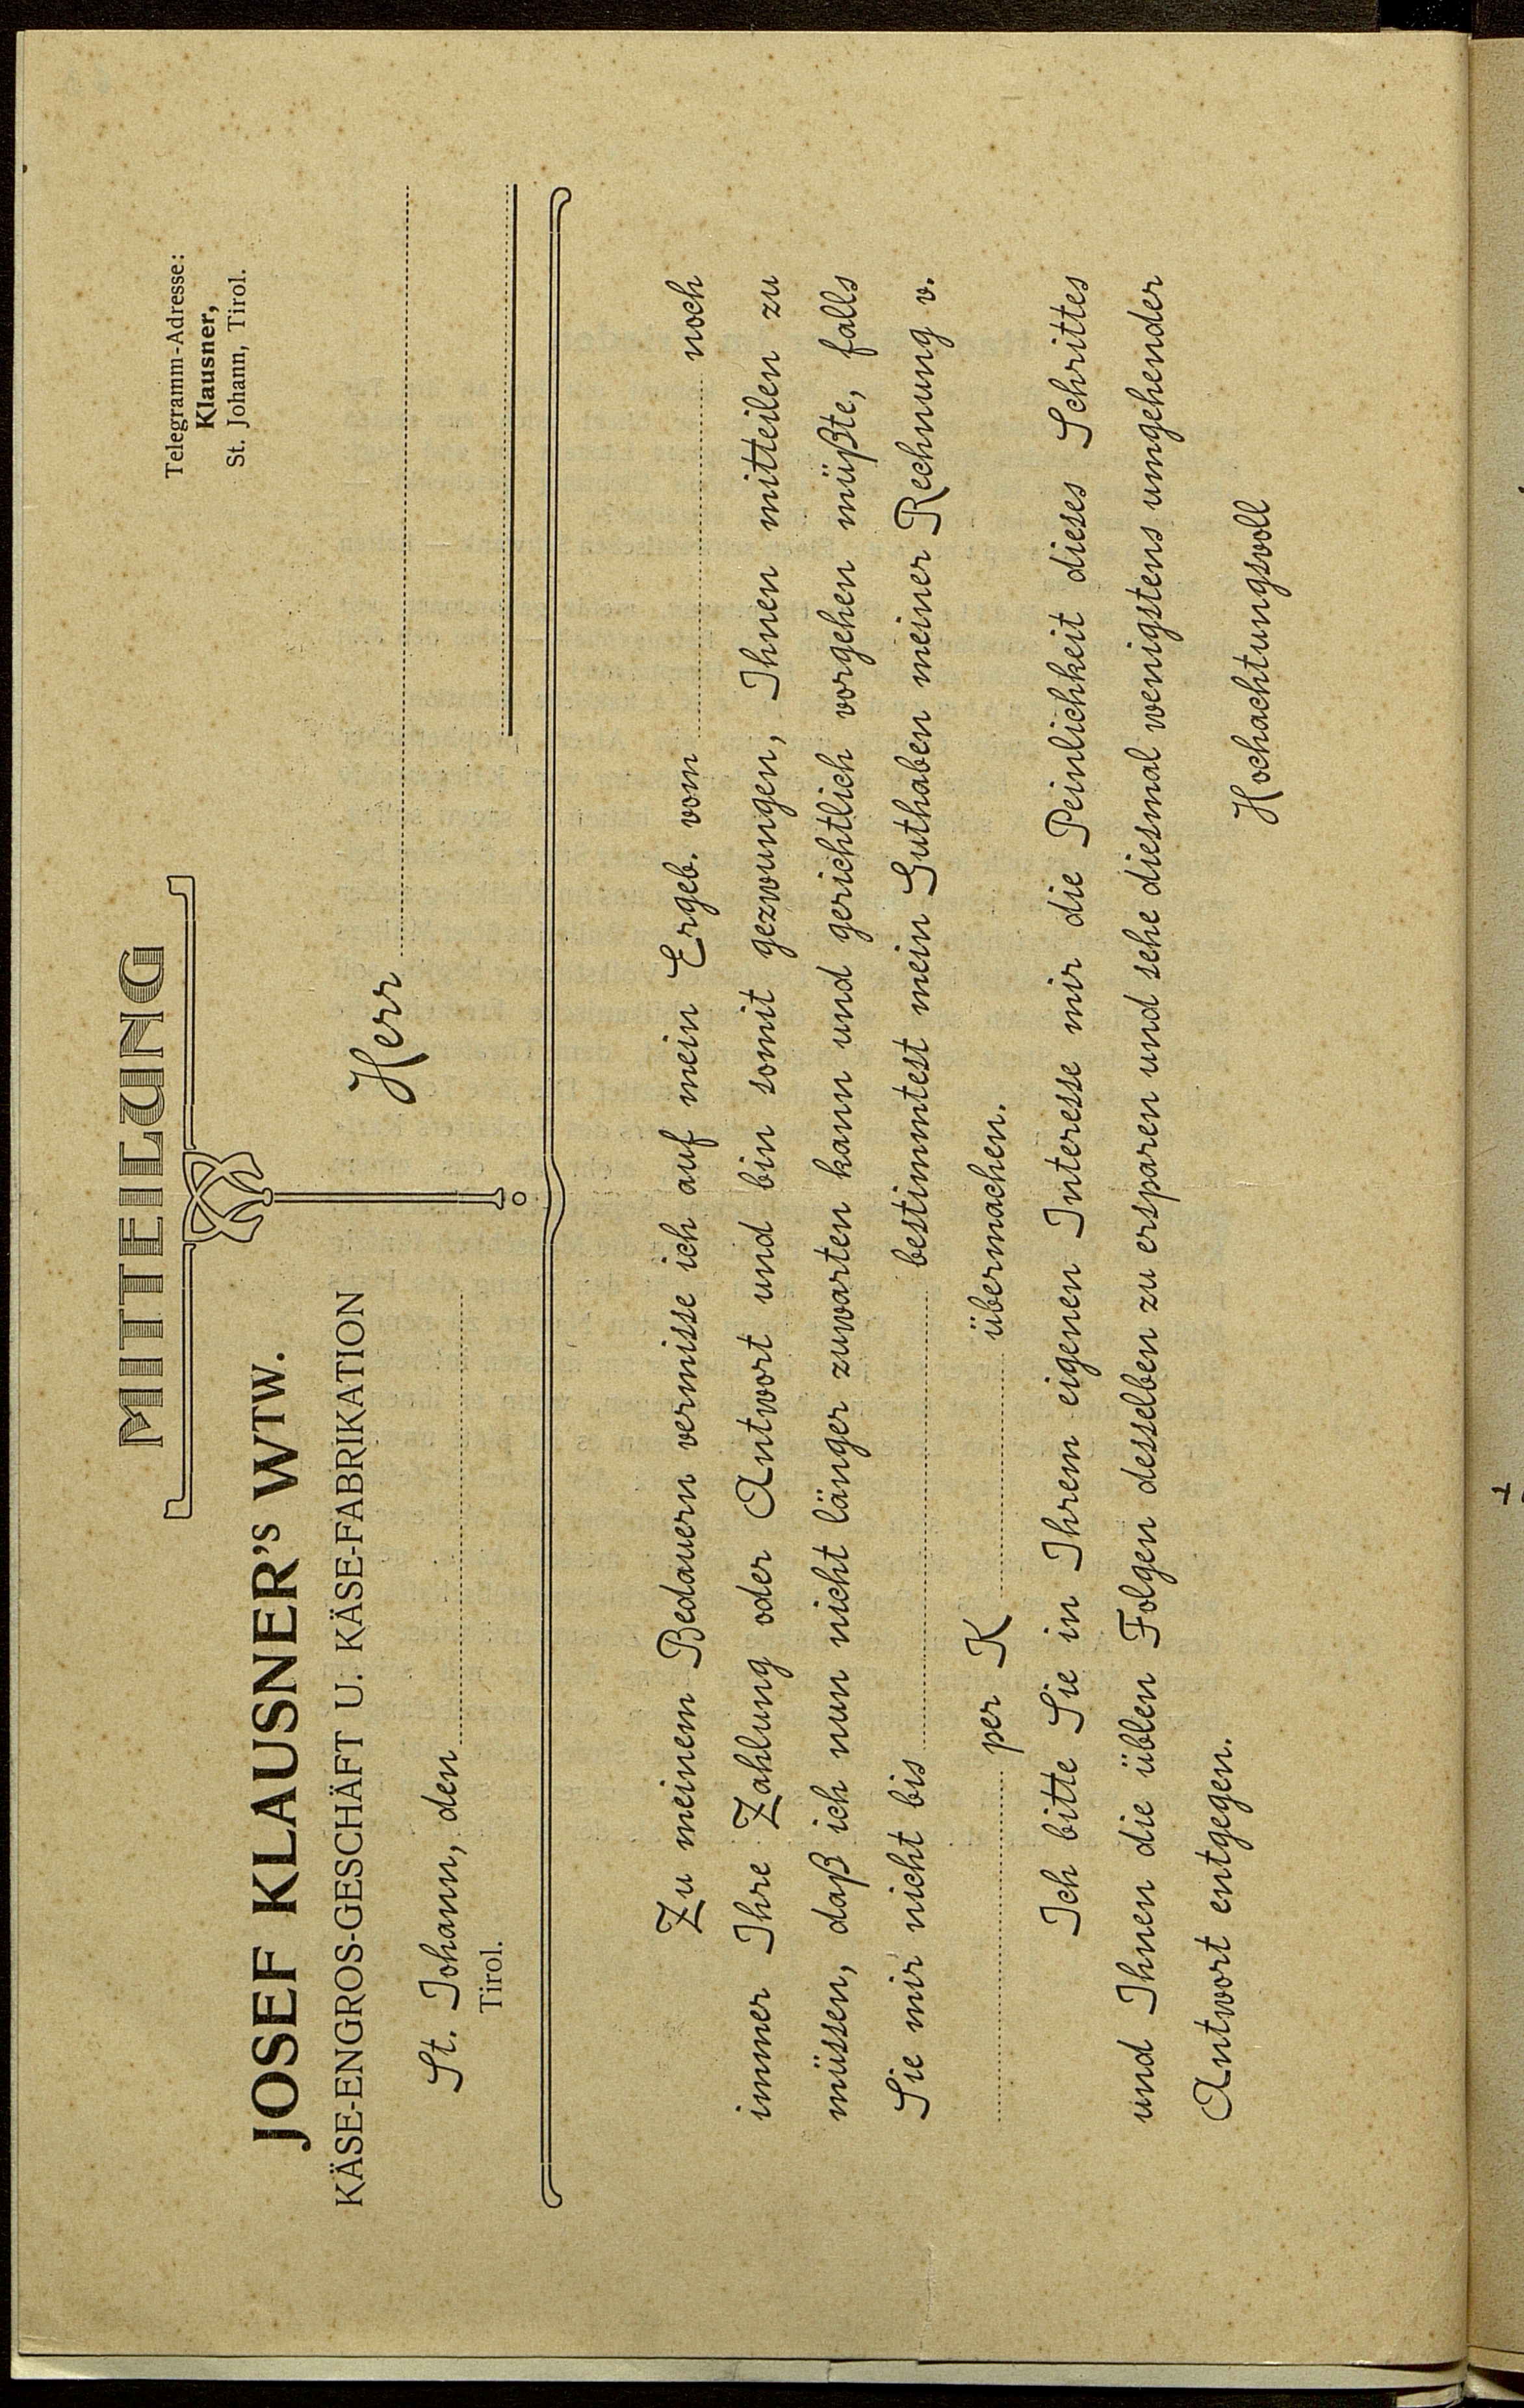 MITTEILUNG
Telegramm-Adresse:
Klausner,
St. Johann, Tirol.
JOSEF KLAUSNER's WTW.
KÄSE-ENGROS-GESCHÄFT U. KÄSE-FABRIKATION
Herr
St. Johann, den
Tirol.
Zu meinem Bedauern vermisse ich auf mein Ergeb. vom noch
immer Ihre Zahlung oder Antwort und bin somit gezwungen, Ihnen mitteilen zu
müssen, daß ich nun nicht länger zuwarten kann und gerichtlich vorgehen müßte, falls
Sie mir nicht bis bestimmtest mein Guthaben meiner Rechnung v.
per K übermachen.
Ich bitte Sie in Ihrem eigenen Interesse mir die Peinlichkeit dieses Schrittes
und Ihnen die üblen Folgen desselben zu ersparen und sehe diesmal wenigstens umgehender
Antwort entgegen.
Hochachtungsvoll